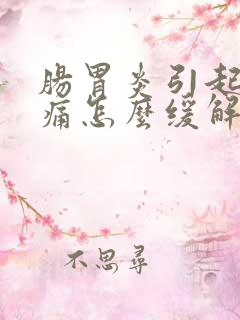 腸胃炎引起
痛怎麼缓解
不思尋